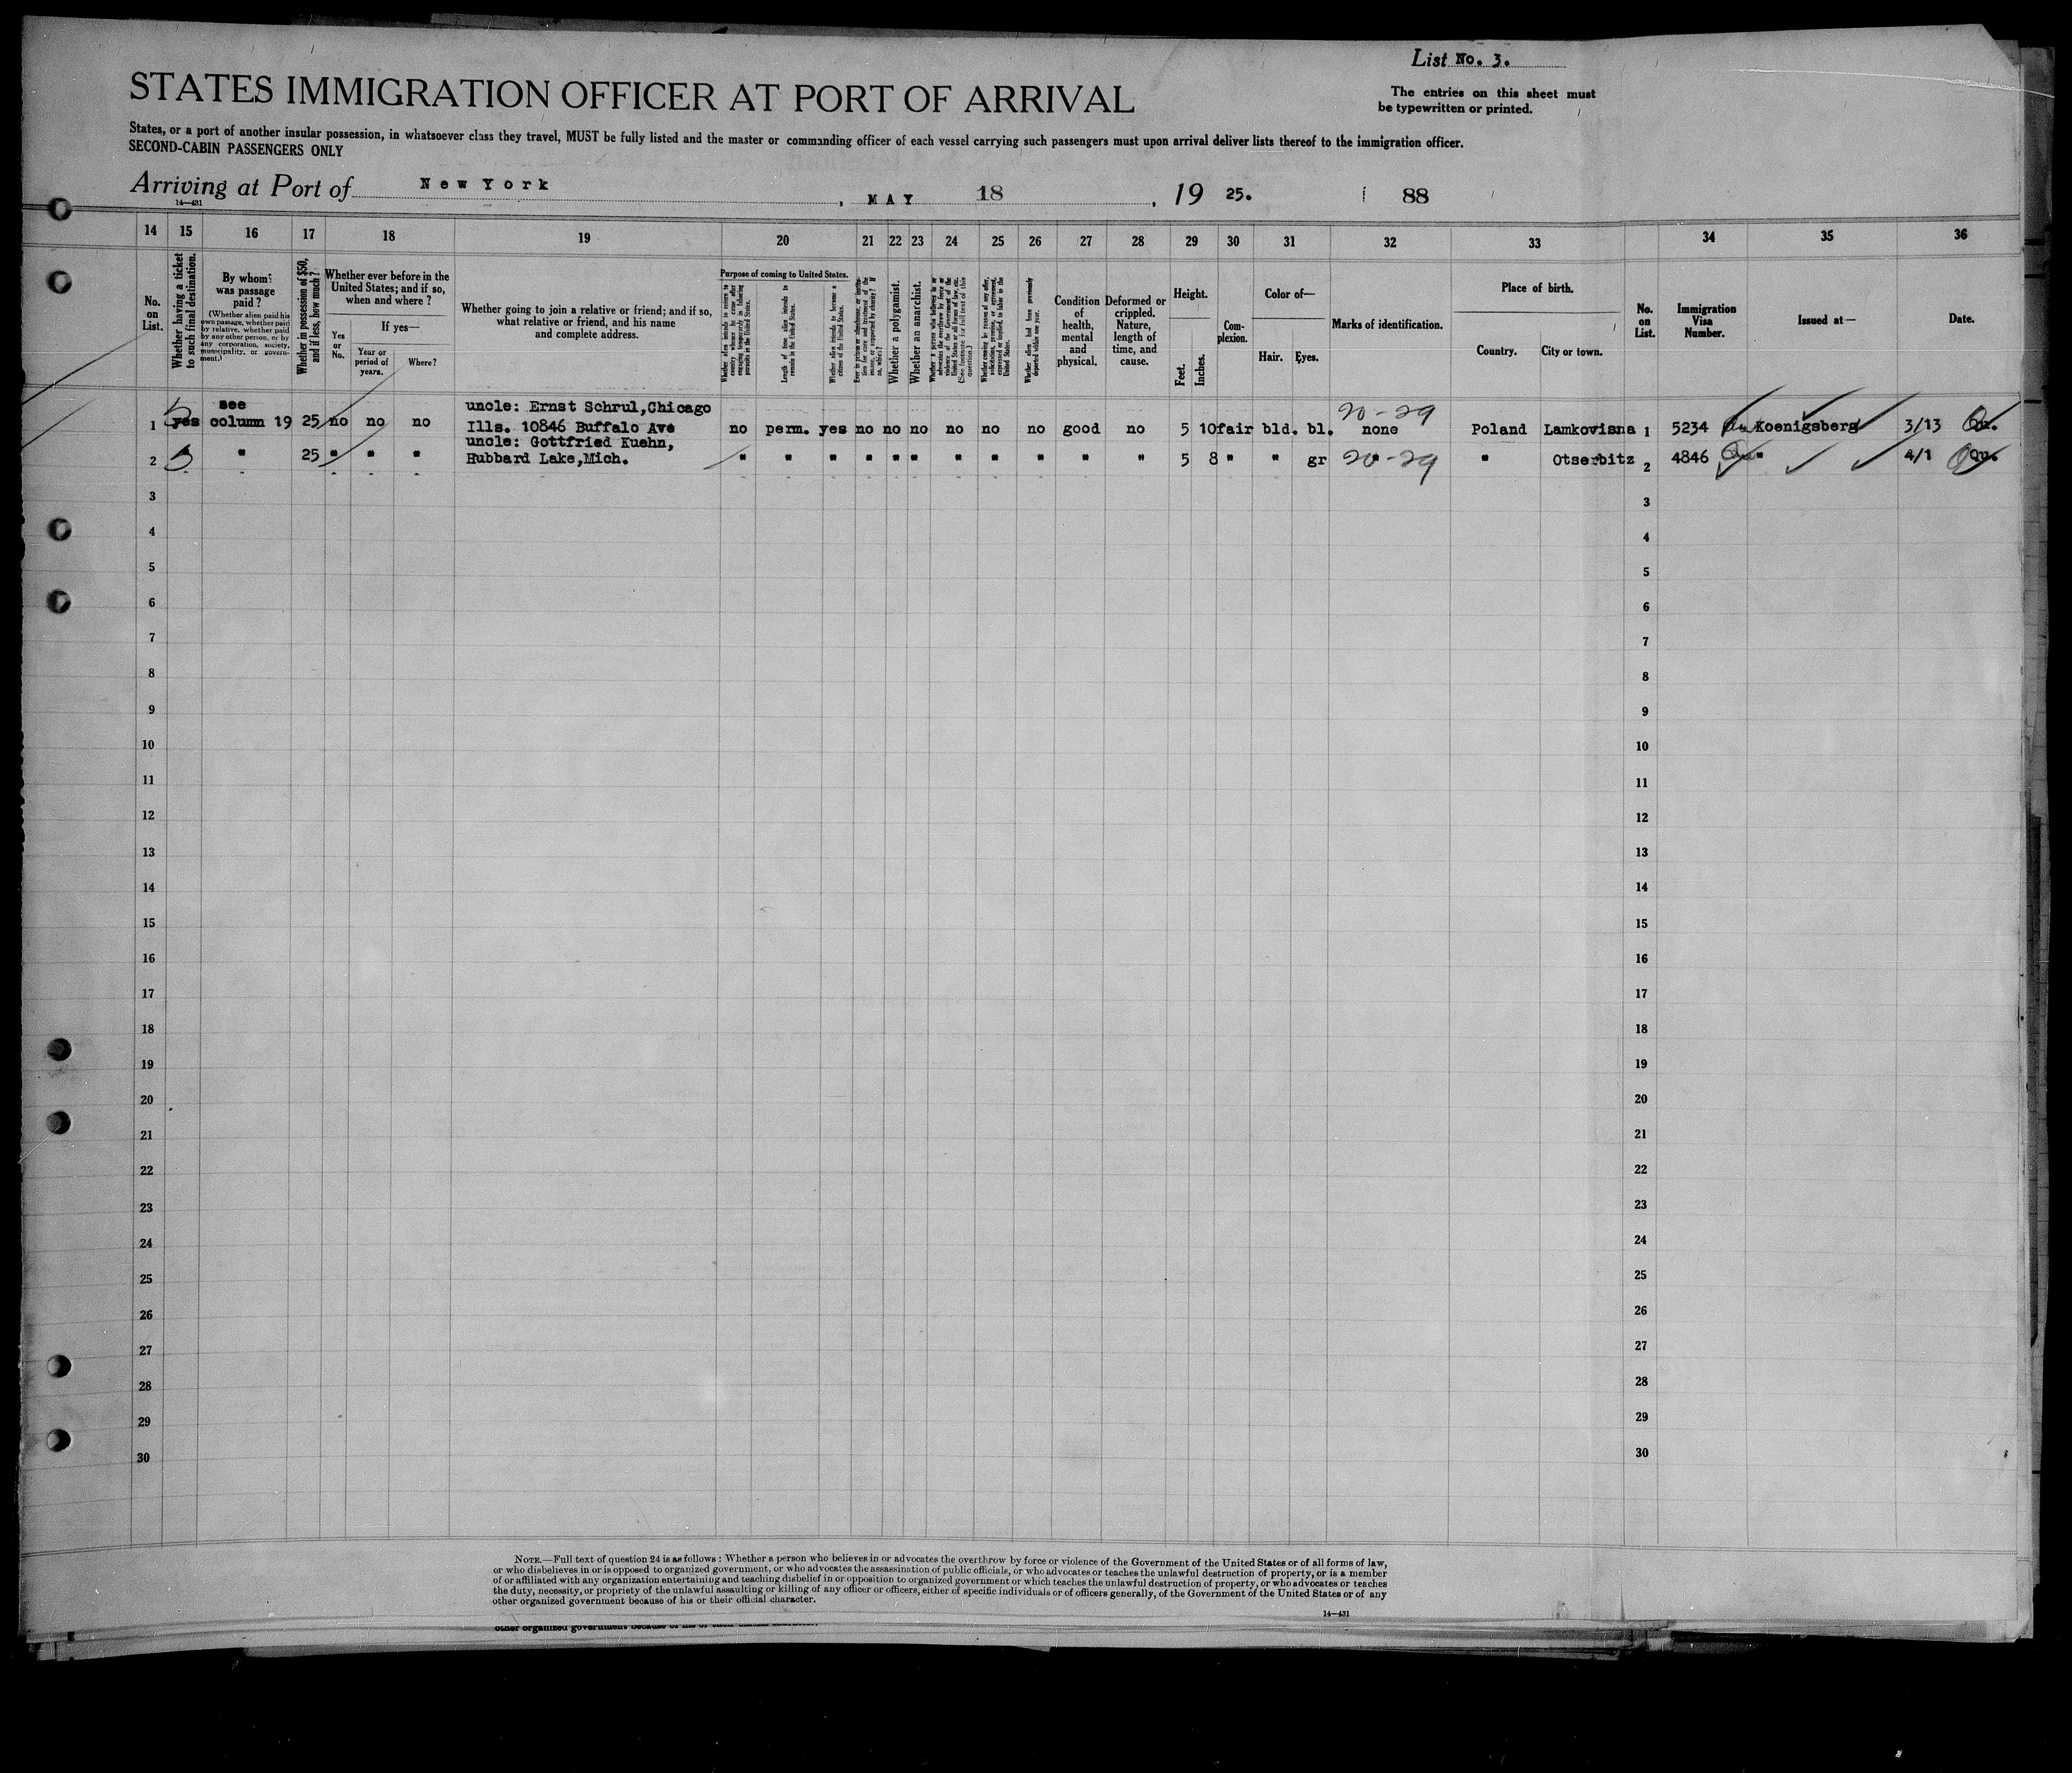 List No. 3.
STATES IMMIGRATION OFFICER AT PORT OF ARRIVAL
The entries on this sheet must
be typewritten or printed.
States, or a port of another insular possession, in whatsoever class they travel, MUST be fully listed and the master or commanding officer of each vessel carrying such passengers must upon arrival deliver lists thereof to the immigration officer.
SECOND-CABIN PASSENGERS ONLY
Arriving at Port of New York, MAY 18, 19 25. 88
14—431
14 15 16 17 18 19 20 21 22 23 24 25 26 27 28 29 30 31 32 33 34 35 36
No. on List.
Whether having a ticket to such final destination.
By whom was passage paid?
(Whether alien paid his own passage, whether paid by relative, whether paid by any other person, or by any corporation, society, municipality, or government.)
Whether in possession of $50, and if less, how much?
Whether ever before in the United States; and if so, when and where?
Yes or No.
If yes—
Year or period of years.
Where?
Whether going to join a relative or friend; and if so, what relative or friend, and his name and complete address.
Purpose of coming to United States.
Length of time alien intends to remain in the United States.
Whether alien intends to become a citizen of the United States.
Whether a polygamist.
Whether an anarchist.
Condition of health, mental and physical.
Deformed or crippled. Nature, length of time, and cause.
Height.
Feet.
Inches.
Complexion.
Color of—
Hair.
Eyes.
Marks of identification.
Place of birth.
Country.
City or town.
No. on List.
Immigration Visa Number.
Issued at—
Date.
see
uncle: Ernst Schrul,Chicago
20-29
1 yes column 19 25 no no no Ills. 10846 Buffalo Ave no perm. yes no no no no no no good no 5 10 fair bld. bl. none Poland Lamkoviana 1 5234 Koenigsberg 3/13 Qu.
uncle: Gottfried Kuehn,
2 " 25 " " " Hubbard Lake,Mich. " " " " " " " " " " " 5 8 " " gr 20-29 " Otserbitz 2 4846 " 4/1 Qu.
3 3
4 4
5 5
6 6
7 7
8 8
9 9
10 10
11 11
12 12
13 13
14 14
15 15
16 16
17 17
18 18
19 19
20 20
21 21
22 22
23 23
24 24
25 25
26 26
27 27
28 28
29 29
30 30
NOTE.—Full text of question 24 is as follows: Whether a person who believes in or advocates the overthrow by force or violence of the Government of the United States or of all forms of law,
or who disbelieves in or is opposed to organized government, or who advocates the assassination of public officials, or who advocates or teaches the unlawful destruction of property, or is a member
of or affiliated with any organization entertaining and teaching disbelief in or opposition to organized government or which teaches the unlawful destruction of property, or who advocates or teaches
the duty, necessity, or propriety of the unlawful assaulting or killing of any officer or officers, either of specific individuals or of officers generally, of the Government of the United States or of any
other organized government because of his or their official character.
14—431